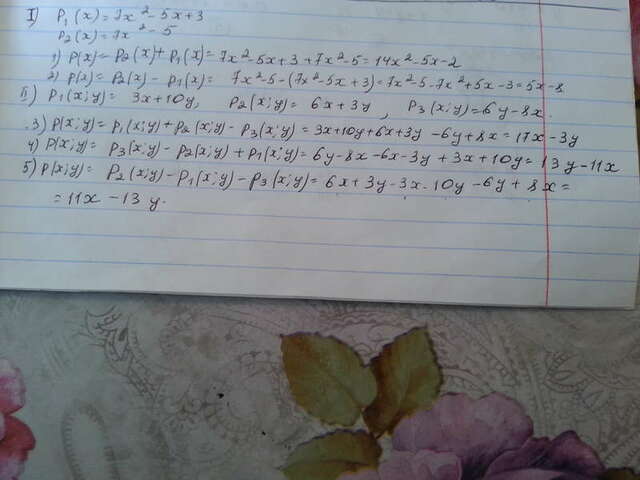 I) P₁(x)=7x²-5x+3
P₂(x)=7x²-5
1) P(x)=P₂(x)+P₁(x)=7x²-5x+3+7x²-5=14x²-5x-2
2) P(x)=P₂(x)-P₁(x)= 7x²-5-(7x²-5x+3)=7x²-5-7x²+5x-3=5x-8
II) P₁(x;y)= 3x+10y, P₂(x;y)= 6x+3y, P₃(x;y)=6y-8x.
3) P(x;y)= P₁(x;y)+P₂(x;y)-P₃(x;y)=3x+10y+6x+3y-6y+8x=17x-3y
4) P(x;y)= P₃(x;y)-P₂(x;y)+P₁(x;y)=6y-8x-6x-3y+3x+10y=13y-11x
5) P(x;y)= P₂(x;y)-P₁(x;y)-P₃(x;y)=6x+3y-3x-10y-6y+8x=
=11x-13y.